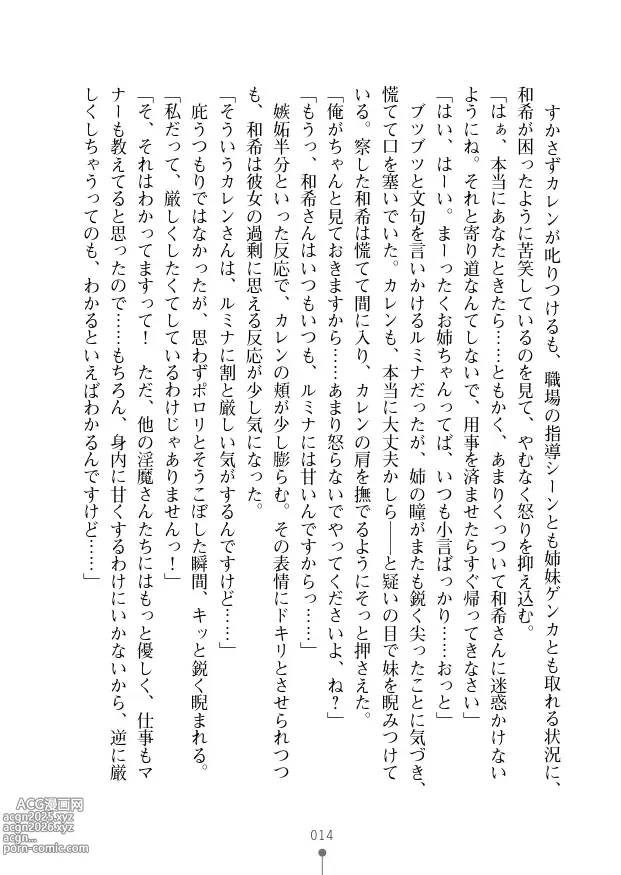 すかさずカレンが叱りつけるも、職場の指導シーンとも姉妹ゲンカとも取れる状況に、
和希が困ったように苦笑しているのを見て、やむなく怒りを抑え込む。
「はぁ、本当にあなたときたら……ともかく、あまりくっついて和希さんに迷惑かけない
ようにね。それと寄り道なんてしないで、用事を済ませたらすぐ帰ってきなさい」
「はい、はーい。まーったくお姉ちゃんってば、いつも小言ばっかり……おっと」
ブツブツと文句を言いかけるルミナだったが、姉の瞳がまたも鋭く尖ったことに気づき、
慌てて口を塞いでいた。カレンも、本当に大丈夫かしら――と疑いの目で妹を睨みつけて
いる。察した和希は慌てて間に入り、カレンの肩を撫でるようにそっと押さえた。
「俺がちゃんと見ておきますから……あまり怒らないでやってくださいよ、ね？」
「もうっ、和希さんはいつもいつも、ルミナには甘いんですからっ……」
嫉妬半分といった反応で、カレンの頬が少し膨らむ。その表情にドキリとさせられつつ
も、和希は彼女の過剰に思える反応が少し気になった。
「そういうカレンさんは、ルミナに割と厳しい気がするんですけど……」
庇うつもりではなかったが、思わずポロリとそうこぼした瞬間、キッと鋭く睨まれる。
「私だって、厳しくしたくてしているわけじゃありませんっ！」
「そ、それはわかってますって！　ただ、他の淫魔さんたちにはもっと優しく、仕事もマ
ナーも教えてると思ったので……もちろん、身内に甘くするわけにいかないから、逆に厳
しくしちゃうってのも、わかるといえばわかるんですけど……」
014
ACG漫画网
acgn2025.xyz
acgn2026.xyz
acgn...
porn-comic.com